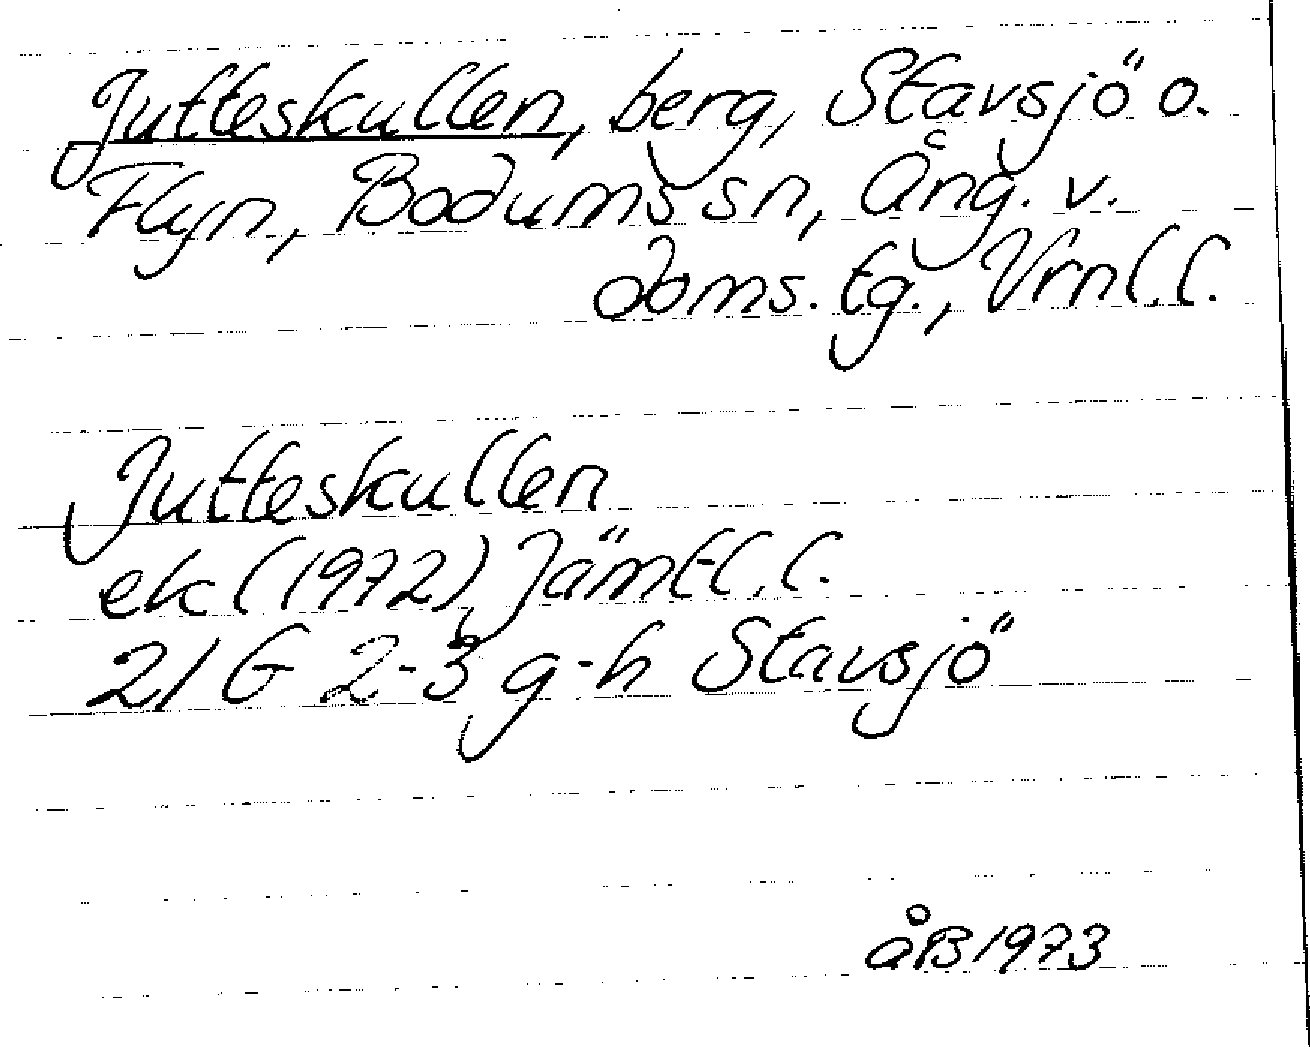 Jutteskullen, berg, Stavsjö o.
Flyn, Bodums sn, Ång. v.
doms. tg., Vrnl. l.
Jutteskullen
ek (1972), Jämtl. l.
21 G 2-3 g-h Stavsjö
åB 1973